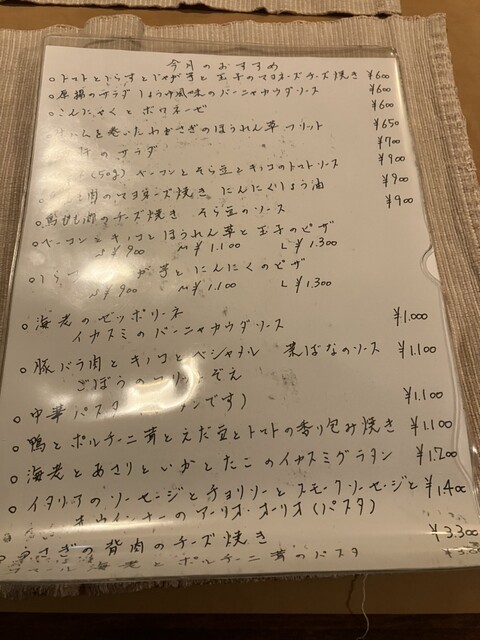 今月のおすすめ
○トマトとしらすとじゃが芋と玉子のマヨネーズチーズ焼き ¥600
サラダ しょうゆ風味のバーニャカウダソース ¥600
○こんにゃくとボロネーゼ ¥600
を巻いたわかさぎのほうれん草フリット ¥650
のサラダ ¥700
(50g) ベーコンとそら豆とキノコのトマトソース ¥900
肉のマヨネーズ焼き にんにくしょう油 ¥900
肉のチーズ焼き そら豆のソース ¥900
○ベーコンとキノコとほうれん草と玉子のピザ
¥900 M¥1.100 L¥1.300
芋とにんにくのピザ
¥900 M¥1.100 L¥1.300
○海老のゼッポリーネ
イカスミのバーニャカウダソース ¥1.000
○豚バラ肉とキノコとベシャメル 菜ばなのソース ¥1.100
ごぼうのフリットぞえ
○中華パスタ です) ¥1.100
○鴨とポルチーニ茸とえだ豆とトマトの香り包み焼き ¥1.100
○海老とあさりといかとたこのイカスミグラタン ¥1.200
○イタリアのソーセージとチョリソーとスモークソーセージと ¥1.400
ウインナーのアーリオ・オーリオ(パスタ)
○うさぎの背肉のチーズ焼き ¥3.300
海老とポルチーニ茸のパスタ